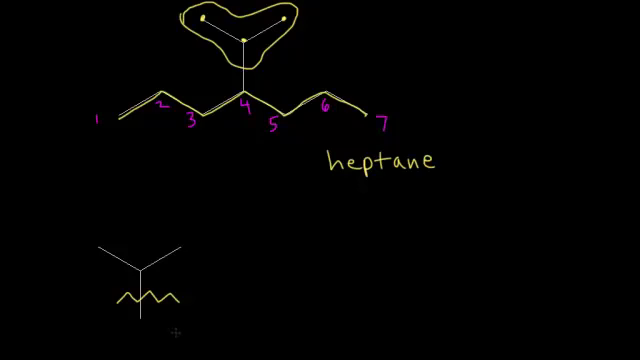 1 2 3 4 5 6 7
heptane